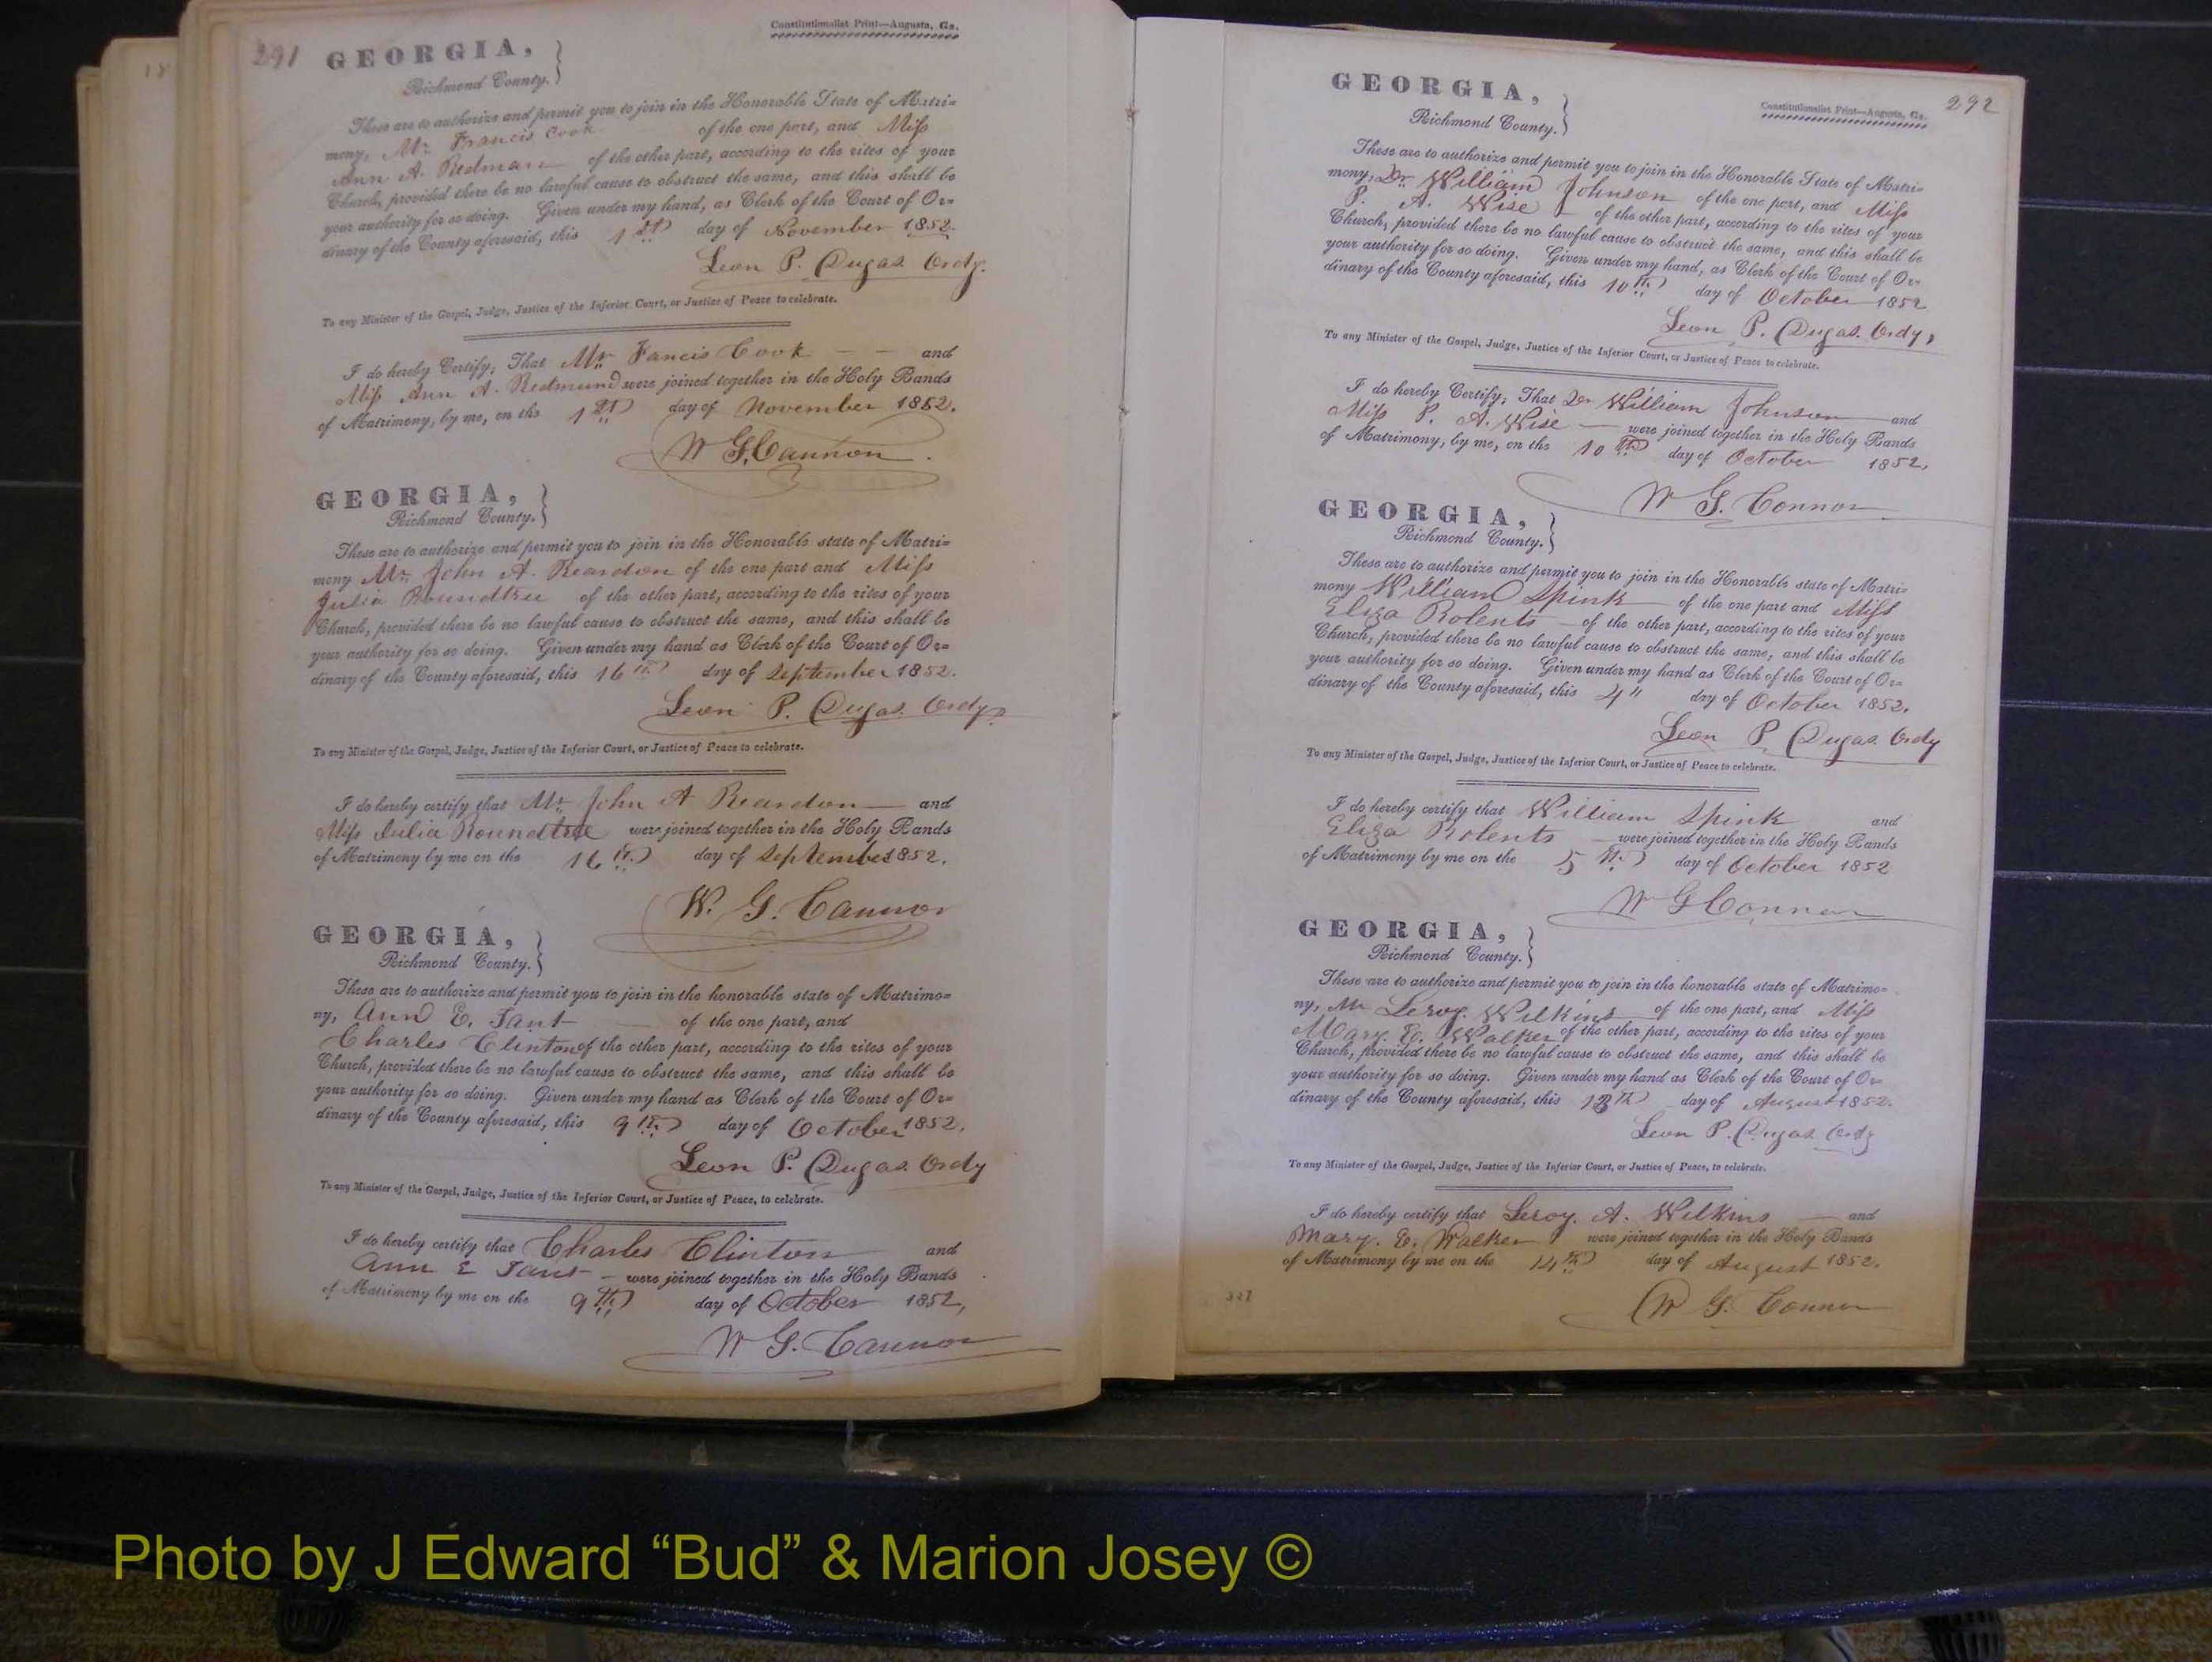 291
Constitutionalist Print—Augusta, Ga.
GEORGIA,
Richmond County.
These are to authorize and permit you to join in the Honorable State of Matri=
mony, Mr. Francis Cook of the one part, and Miss
Ann A. Redman of the other part, according to the rites of your
Church, provided there be no lawful cause to obstruct the same, and this shall be
your authority for so doing. Given under my hand, as Clerk of the Court of Or=
dinary of the County aforesaid, this 1st day of November 1852.
Leon P. Dugas. Ordy.
To any Minister of the Gospel, Judge, Justice of the Inferior Court, or Justice of Peace to celebrate.
I do hereby Certify, That Mr. Fancis Cook and
Miss Ann A. Redmund were joined together in the Holy Bands
of Matrimony, by me, on the 1st day of November 1852.
W G. Cannon.
GEORGIA,
Richmond County.
These are to authorize and permit you to join in the Honorable state of Matri=
mony Mr. John A. Reardon of the one part and Miss
Julia Roundtree of the other part, according to the rites of your
Church, provided there be no lawful cause to obstruct the same, and this shall be
your authority for so doing. Given under my hand as Clerk of the Court of Or=
dinary of the County aforesaid, this 16th day of September 1852.
Leon P. Dugas. Ordy.
To any Minister of the Gospel, Judge, Justice of the Inferior Court, or Justice of Peace to celebrate.
I do hereby certify that Mr. John A Reardon and
Miss Julia Roundtree were joined together in the Holy Bands
of Matrimony by me on the 16th day of September 1852.
W. G. Cannor
GEORGIA,
Richmond County.
These are to authorize and permit you to join in the honorable state of Matrimo=
ny, Ann E. Tant of the one part, and
Charles Clinton of the other part, according to the rites of your
Church, provided there be no lawful cause to obstruct the same, and this shall be
your authority for so doing. Given under my hand as Clerk of the Court of Or=
dinary of the County aforesaid, this 9th day of October 1852.
Leon P. Dugas. Ordy
To any Minister of the Gospel, Judge, Justice of the Inferior Court, or Justice of Peace, to celebrate.
I do hereby certify that Charles Clinton and
Ann E Tant were joined together in the Holy Bands
of Matrimony by me on the 9th day of October 1852,
W G. Cannor
292
Constitutionalist Print—Augusta, Ga.
GEORGIA,
Richmond County.
These are to authorize and permit you to join in the Honorable State of Matri=
mony, Dr. William Johnson of the one part, and Miss
P. A. Wise of the other part, according to the rites of your
Church, provided there be no lawful cause to obstruct the same, and this shall be
your authority for so doing. Given under my hand, as Clerk of the Court of Or=
dinary of the County aforesaid, this 10th day of October 1852
Leon P. Dugas. Ordy,
To any Minister of the Gospel, Judge, Justice of the Inferior Court, or Justice of Peace to celebrate.
I do hereby Certify, That Dr William Johnson and
Miss P. A. Wise were joined together in the Holy Bands
of Matrimony, by me, on the 10th day of October 1852.
W G. Connor
GEORGIA,
Richmond County.
These are to authorize and permit you to join in the Honorable state of Matri=
mony William Spink of the one part and Miss
Eliza Rolents of the other part, according to the rites of your
Church, provided there be no lawful cause to obstruct the same, and this shall be
your authority for so doing. Given under my hand as Clerk of the Court of Or=
dinary of the County aforesaid, this 4" day of October 1852.
Leon P. Dugas. Ordy
To any Minister of the Gospel, Judge, Justice of the Inferior Court, or Justice of Peace to celebrate.
I do hereby certify that William Spink and
Eliza Rolents were joined together in the Holy Bands
of Matrimony by me on the 5th day of October 1852
W G Connor
GEORGIA,
Richmond County.
These are to authorize and permit you to join in the honorable state of Matrimo=
ny, Mr Leroy. Wilkins of the one part, and Miss
Mary. E. Walker of the other part, according to the rites of your
Church, provided there be no lawful cause to obstruct the same, and this shall be
your authority for so doing. Given under my hand as Clerk of the Court of Or=
dinary of the County aforesaid, this day of August 1852.
Leon P. Dugas Ordy
To any Minister of the Gospel, Judge, Justice of the Inferior Court, or Justice of Peace, to celebrate.
I do hereby certify that Leroy. A. Wilkins and
Mary. E. Walker were joined together in the Holy Bands
of Matrimony by me on the 14th day of August 1852.
W G. Connor
Photo by J Edward “Bud” & Marion Josey ©